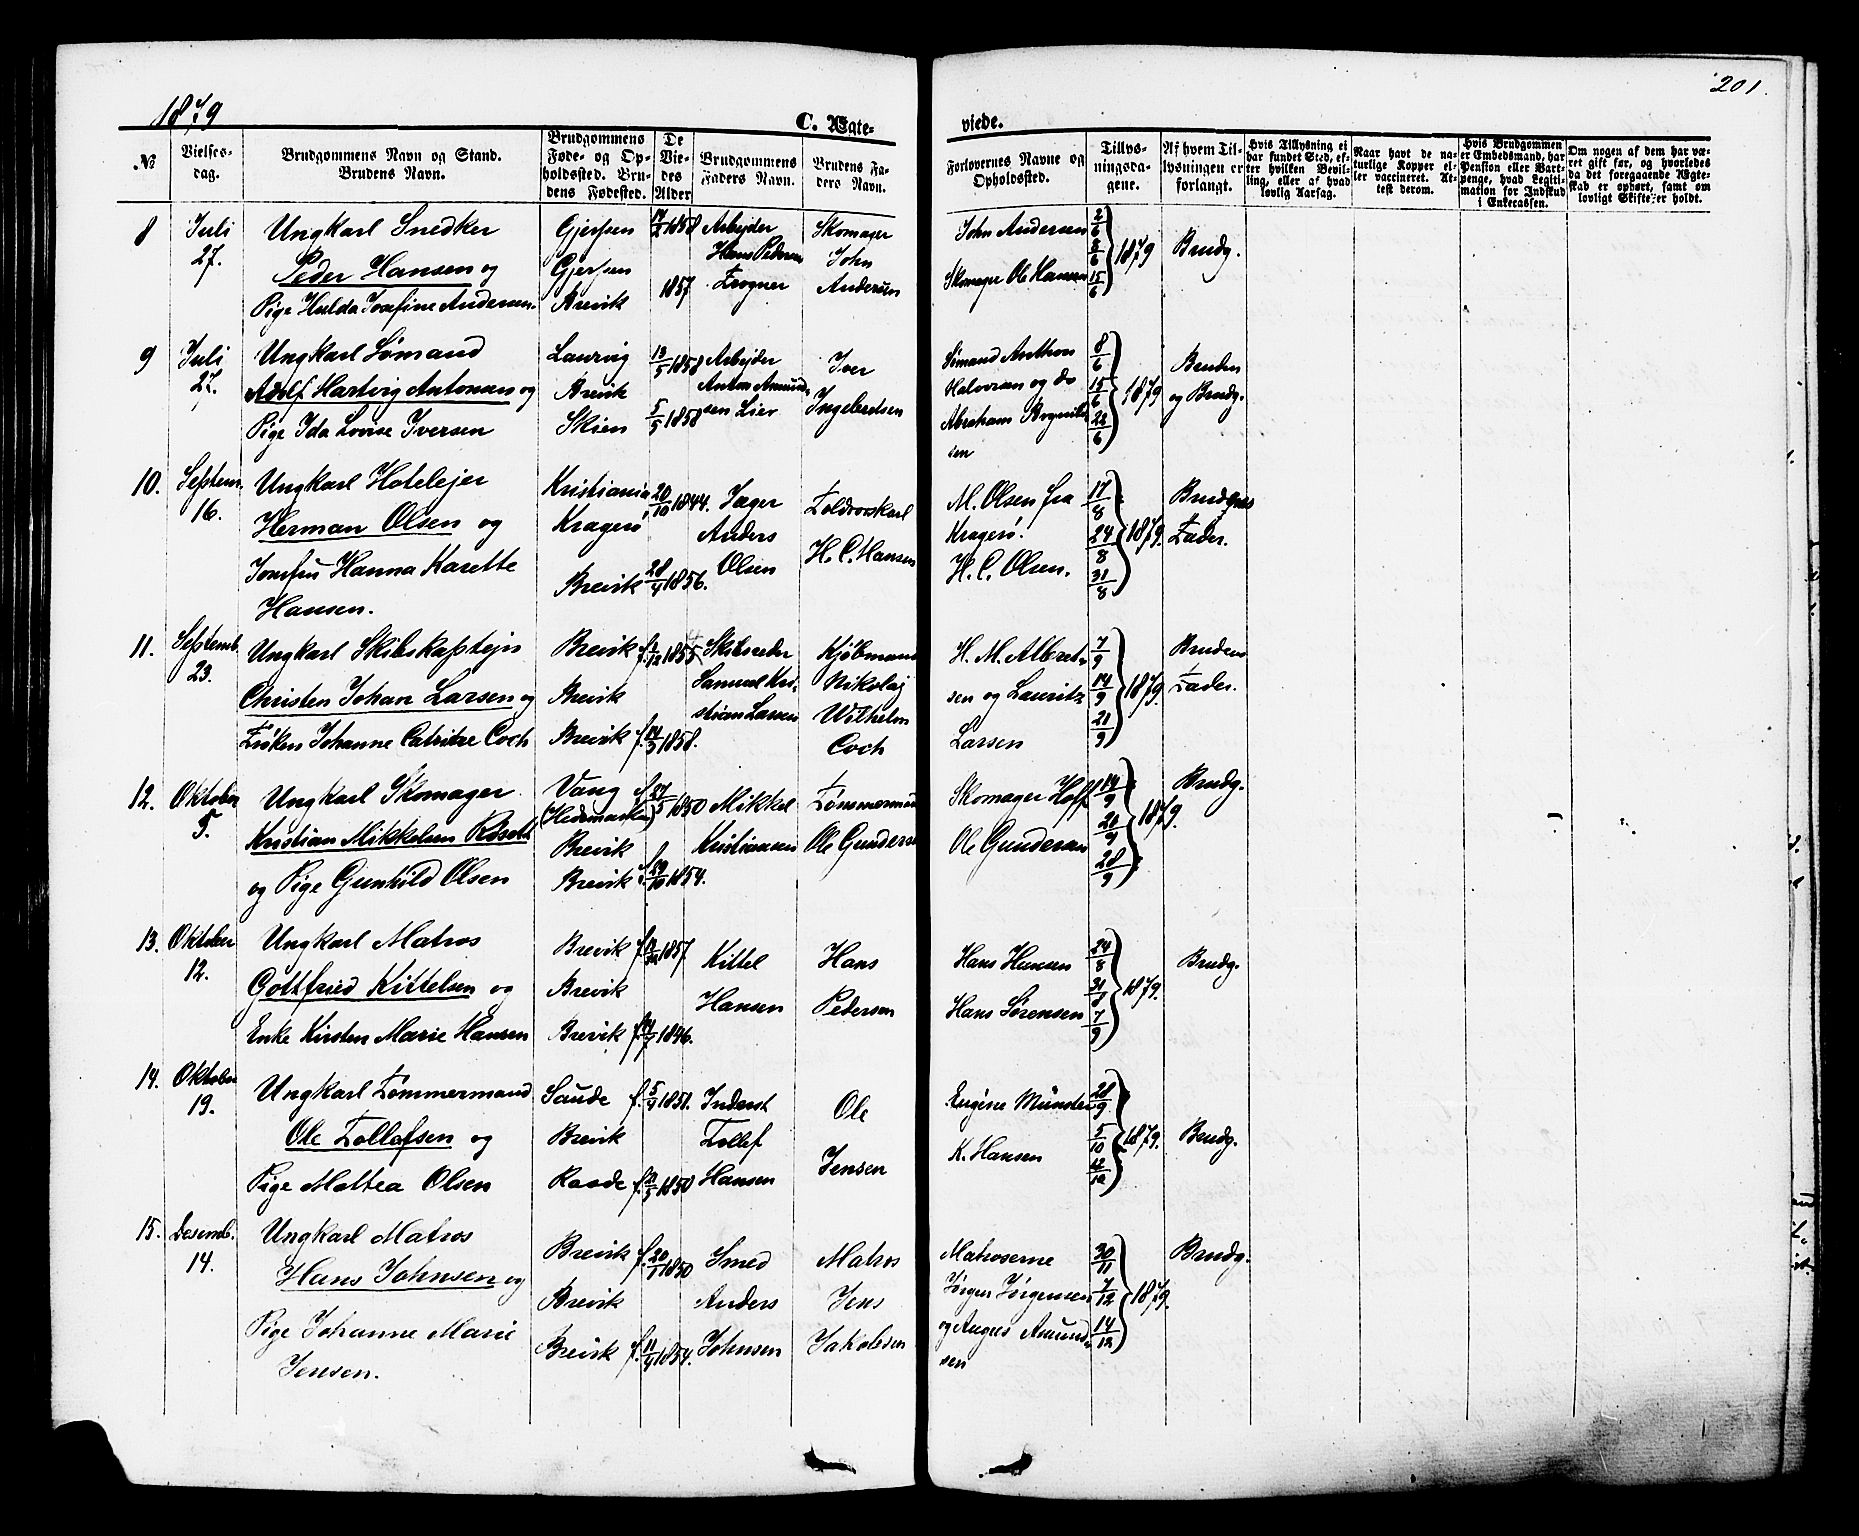 201.
1879
C. Ægte-
viede.
No
Vielses-
dag.
Brudgommens Navn og Stand.
Brudens Navn.
Brudgommens
Føde- og Op-
holdssted. Bru-
dens Fødested.
De
Vie-
des
Alder
Brudgommens
Faders Navn.
Brudens Fa-
ders Navn.
Forlovernes Navne og
Opholdssted.
Tillys-
ningsda-
gene.
Af hvem Til-
lysningen er
forlangt.
Hvis Tillysning ei
har fundet Sted, ef-
ter hvilken Bevil-
ling, eller af hvad
lovlig Aarsag.
Naar havt de na-
turlige Kopper el-
ler vaccineret. At-
test derom.
Hvis Brudgommen
er Embedsmand, har
Pension eller Vart-
penge, hvad Legiti-
mation for Indskud
i Enkecassen.
Om nogen af dem har væ-
ret gift før, og hvorledes
da det foregaaende Ægte-
skab er ophørt, samt om
lovligt Skifte er holdt.
8
Juli
27.
Ungkarl Snedker
Peder Hansen og
Pige Hulda Josefine Andersen.
Gjerpen
Gjerpen
Brevik
1858
1857
Arbejder
Hans Pedersen
Skomager
John
Andersen
John Andersen
Skomager Ole Hansen
2/6
8/6
15/6
1879
Brudg.
9
Juli
27.
Ungkarl Sømand
Adolf Hartvig Antonsen og
Pige Ida Lovise Iversen
Laurvig
Brevik
Skien
13/5 1858
5/5 1858
Arbejder
Anton Amund-
sen Lier
Iver
Ingebretsen
Sømand Anthon
Halvorsen og do
Abraham
sen
8/6
15/6
22/6
1879
Bruden
og Brudg.
10.
Septem.
16.
Ungkarl Hotelejer
Herman Olsen og
Jomfru Hanna Karette
Hansen.
Kristiania
Kragerø
Brevik
20/10 1844.
28/4 1856.
Jæger
Anders
Olsen
Toldroerskarl
H. C. Hansen
M. Olsen fra
Kragerø.
H. C. Olsen.
17/8
24/8
31/8
1879.
Brudens
Fader.
11.
Septemb.
23.
Ungkarl Skibskaptejn
Christen Johan Larsen og
Frøken Johanne Catrine Coch
Brevik
Brevik
Brevik
1855
f. 14/3 1858.
Skibsreder
Samuel Kri-
stian Larsen
Kjøbmand
Nikolaj
Wilhelm
Coch
H. M. Albret-
sen og Lauritz
Larsen
7/9
14/9
21/9
1879.
Brudens
Fader.
12.
Oktober
5.
Ungkarl Skomager
Kristian Mikkelsen
og Pige Gunhild Olsen
Vang
(Hedemarken)
Brevik
Brevik
f. 27/5 1850
f. 29/10 1854.
Mikkel
Kristiansen
Tømmermand
Ole Gundersen
Skomager Hoff
Ole Gundersen
14/9
21/9
28/9
1879.
Brudg.
13.
Oktober
12.
Ungkarl Matros
Gottfried Kittelsen og
Enke Kirsten Marie Hansen
Brevik
Brevik
Brevik
1857
1846.
Kittel
Hansen
Hans
Pedersen
Hans Hansen
Hans Sørensen
24/8
31/8
7/9
1879.
Brudg.
14.
Oktober
19.
Ungkarl Tømmermand
Ole Tollefsen og
Pige Mattea Olsen
Saude
Brevik
Raade
f. 5/4 1851.
1850
Inderst
Tollef
Hansen
Ole
Jensen
Eugene Münster
K. Hansen
28/9
5/10
12/10
1879.
Brudg.
15.
Desemb.
14.
Ungkarl Matros
Hans Johnsen og
Pige Johanne Marie
Jensen.
Brevik
Brevik
Brevik
f. 20/1 1850
f. 11/4 1854.
Smed
Anders
Johnsen
Matros
Jens
Jakobsen
Matroserne
Jørgen Jørgensen
og Amund-
sen
30/11
7/12
14/12
1879.
Brudg.